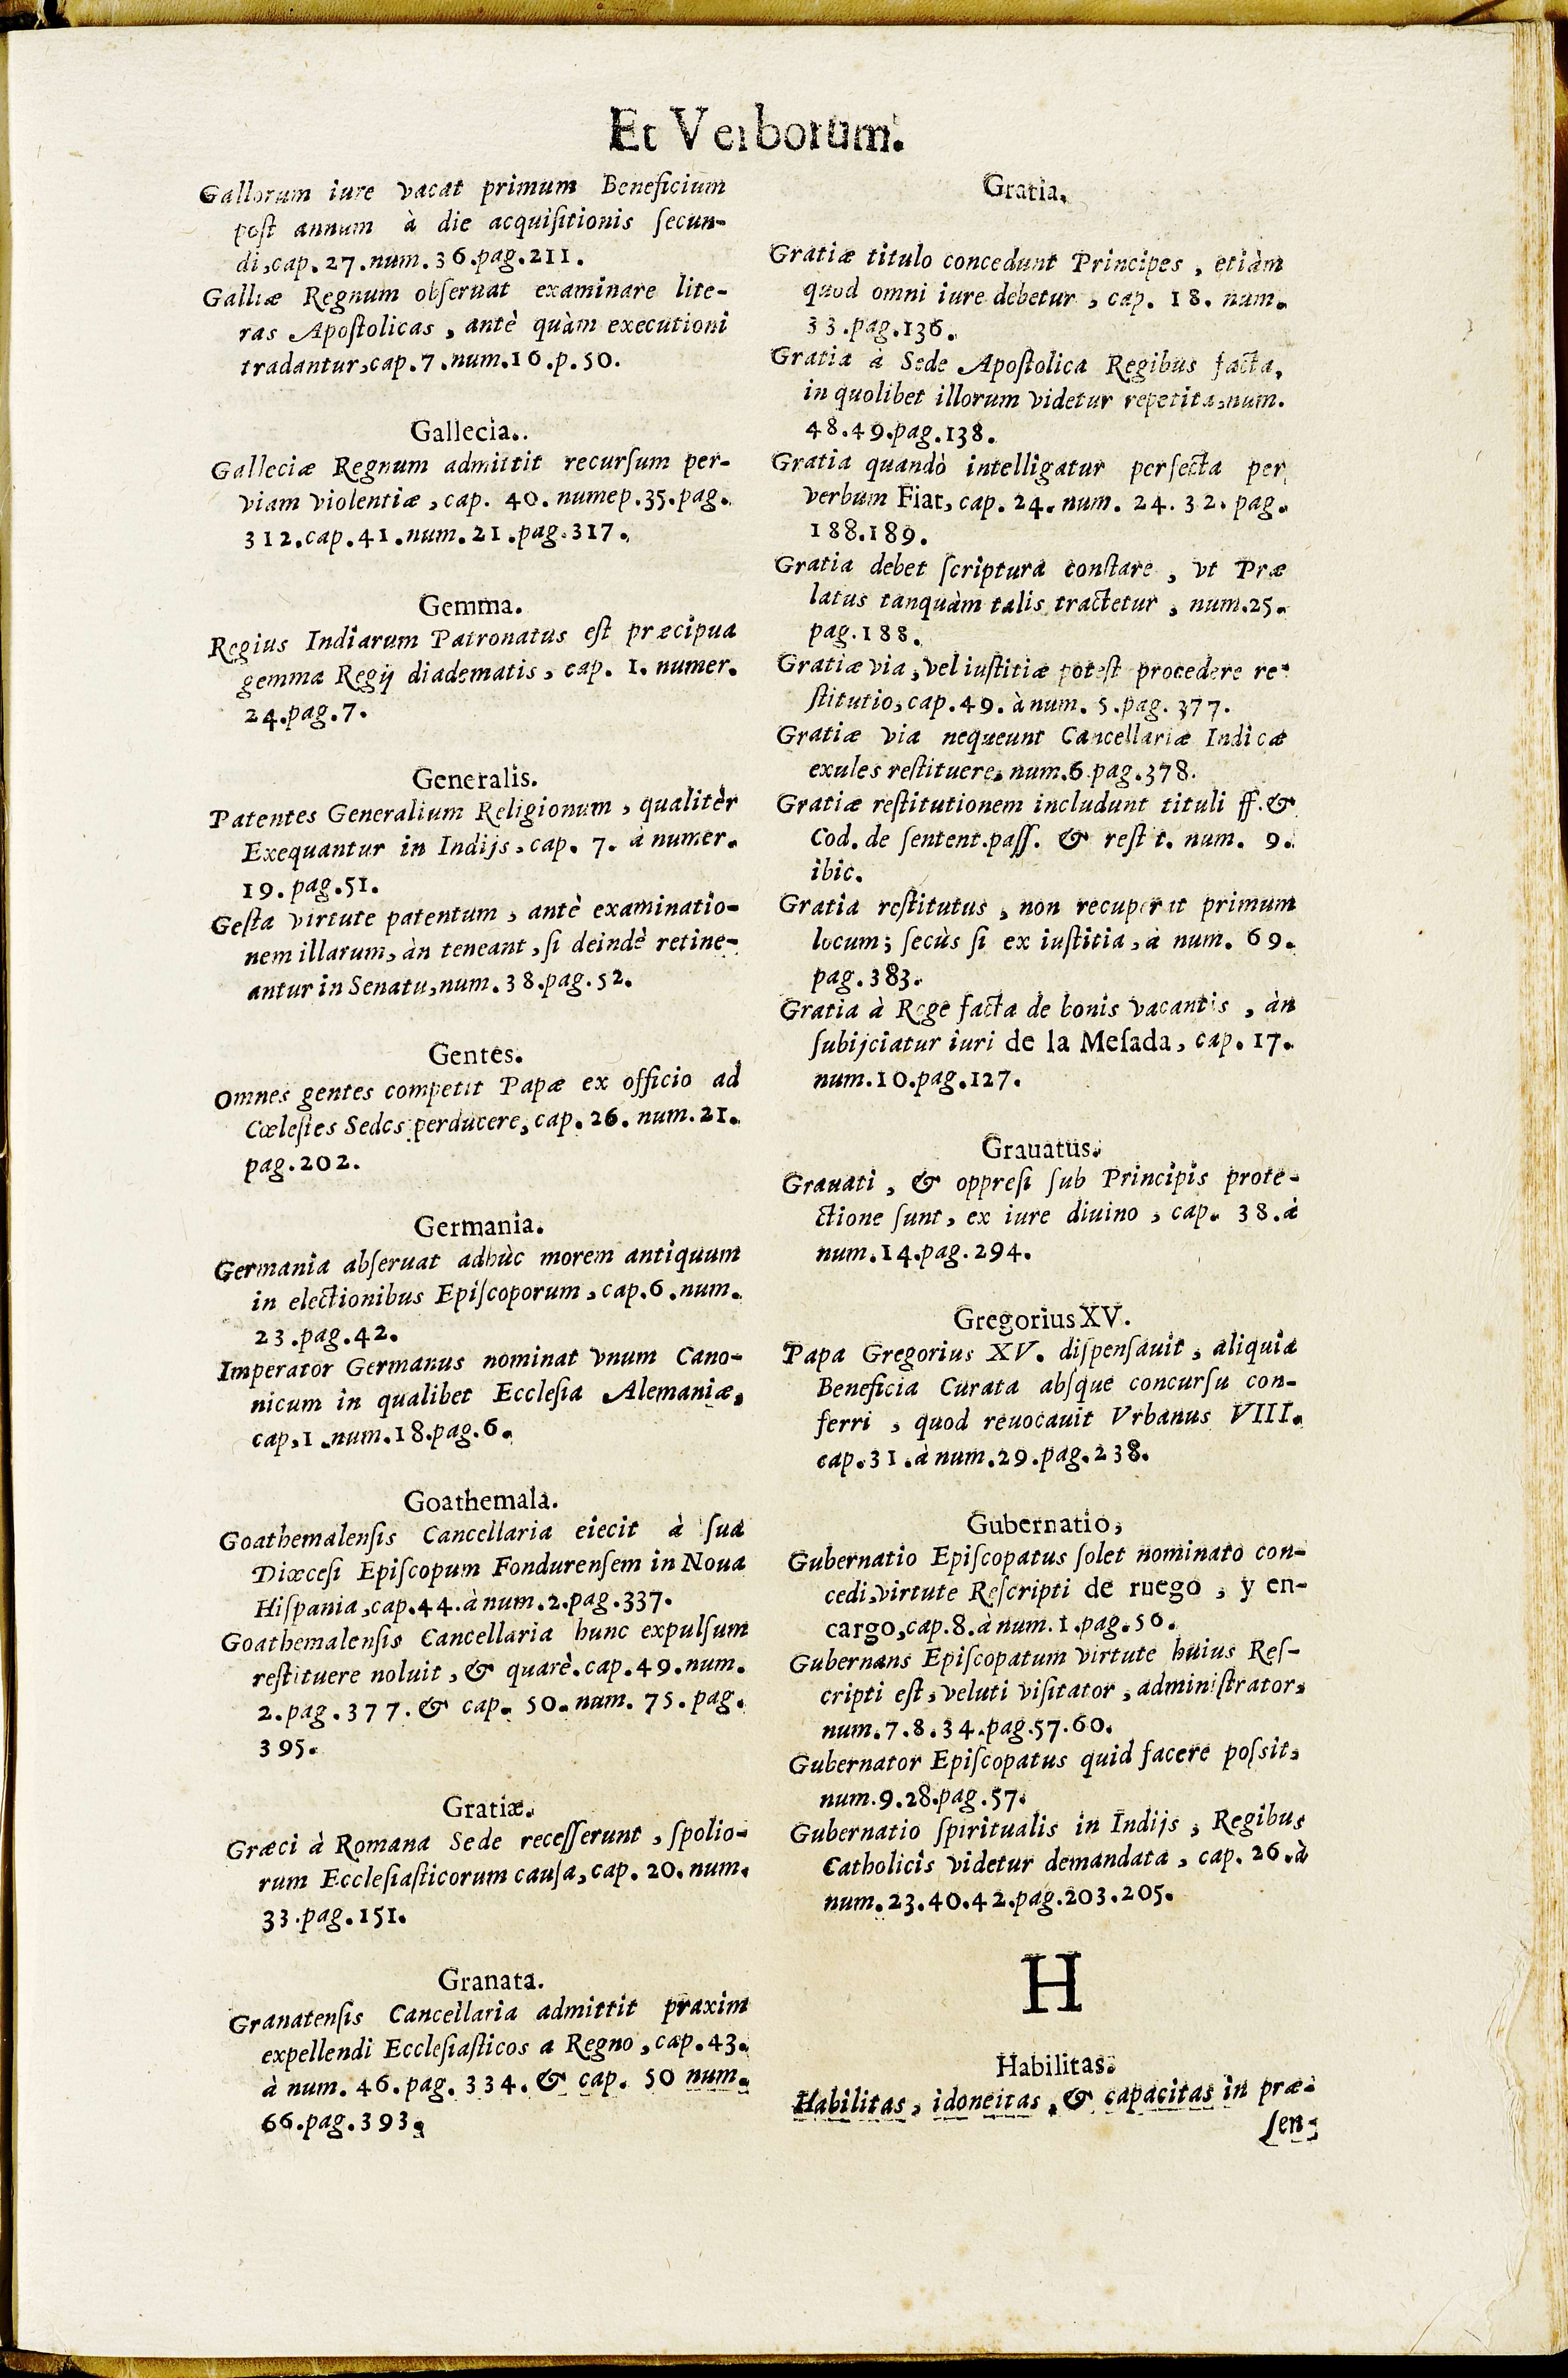 Et Verborum.
Gallorum iure vacat primum Beneficium
poſt annum à die acquiſitionis ſecun-
di, cap. 27. num. 36. pag. 211.
Galliæ Regnum obſeruat examinare lite-
ras Apoſtolicas, antè quàm executioni
tradantur, cap. 7. num. 16. p. 50.
Gallecia.
Galleciæ Regnum admittit recurſum per-
viam violentiæ, cap. 40. numep. 35. pag.
312. cap. 41. num. 21. pag. 317.
Gemma.
Regius Indiarum Patronatus eſt præcipua
gemma Regij diadematis, cap. 1. numer.
24. pag. 7.
Generalis.
Patentes Generalium Religionum, qualitèr
Exequantur in Indijs, cap. 7. à numer.
19. pag. 51.
Geſta virtute patentum, antè examinatio-
nem illarum, àn teneant, ſi deindè retine-
antur in Senatu, num. 38. pag. 52.
Gentes.
Omnes gentes competit Papæ ex officio ad
Cœleſtes Sedes perducere, cap. 26. num. 21.
pag. 202.
Germania.
Germania abſeruat adhùc morem antiquum
in electionibus Epiſcoporum, cap. 6. num.
23. pag. 42.
Imperator Germanus nominat vnum Cano-
nicum in qualibet Eccleſia Alemaniæ,
cap, 1. num. 18. pag. 6.
Goathemala.
Goathemalenſis Cancellaria eiecit à ſua
Diœceſi Epiſcopum Fondurenſem in Noua
Hiſpania, cap. 44. à num. 2. pag. 337.
Goathemalenſis Cancellaria hunc expulſum
reſtituere noluit, & quarè. cap. 49. num.
2. pag. 377. & cap. 50. num. 75. pag.
395.
Gratiæ.
Græci à Romana Sede receſſerunt, ſpolio-
rum Eccleſiaſticorum cauſa, cap. 20. num.
33. pag. 151.
Granata.
Granatenſis Cancellaria admittit praxim
expellendi Eccleſiaſticos a Regno, cap. 43.
à num. 46. pag. 334. & cap. 50 num.
66. pag. 393.
Gratia.
Gratiæ titulo concedunt Principes, etiàm
quod omni iure debetur, cap. 18. num.
33. pag. 136.
Gratia à Sede Apoſtolica Regibus facta,
in quolibet illorum videtur repetita, num.
48. 49. pag. 138.
Gratia quandò intelligatur perfecta per
verbum Fiat, cap. 24. num. 24. 32. pag.
188. 189.
Gratia debet ſcriptura conſtare, vt Præ
latus tanquàm talis tractetur, num. 25.
pag. 188.
Gratiæ via, vel iuſtitiæ poteſt procedere re-
ſtitutio, cap. 49. à num. 5. pag. 377.
Gratiæ via nequeunt Cancellariæ Indicæ
exules reſtituere, num. 6. pag. 378.
Gratiæ reſtitutionem includunt tituli ff. &
Cod. de ſentent. paſſ. & reſt t. num. 9.
ibic.
Gratia reſtitutus, non recuperat primum
locum; ſecùs ſi ex iuſtitia, à num. 69.
pag. 383.
Gratia à Rege facta de bonis vacantis, àn
ſubijciatur iuri de la Meſada, cap. 17.
num. 10. pag. 127.
Grauatus.
Grauati, & oppreſi ſub Principis prote-
ctione ſunt, ex iure diuino, cap. 38. à
num. 14. pag. 294.
Gregorius XV.
Papa Gregorius XV. diſpenſauit, aliquia
Beneficia Curata abſque concurſu con-
ferri, quod reuocauit Vrbanus VIII.
cap. 31. à num. 29. pag. 238.
Gubernatio,
Gubernatio Epiſcopatus ſolet nominato con-
cedi, virtute Reſcripti de ruego, y en-
cargo, cap. 8. à num. 1. pag. 56.
Gubernans Epiſcopatum virtute huius Reſ-
cripti eſt, veluti viſitator, adminiſtrator,
num. 7. 8. 34. pag. 57. 60.
Gubernator Epiſcopatus quid facere poſsit,
num. 9. 28. pag. 57.
Gubernatio ſpiritualis in Indijs, Regibus
Catholicis videtur demandata, cap. 26. à
num. 23. 40. 42. pag. 203. 205.
H
Habilitas.
Habilitas, idoneitas, & capacitas in præ-
ſen-